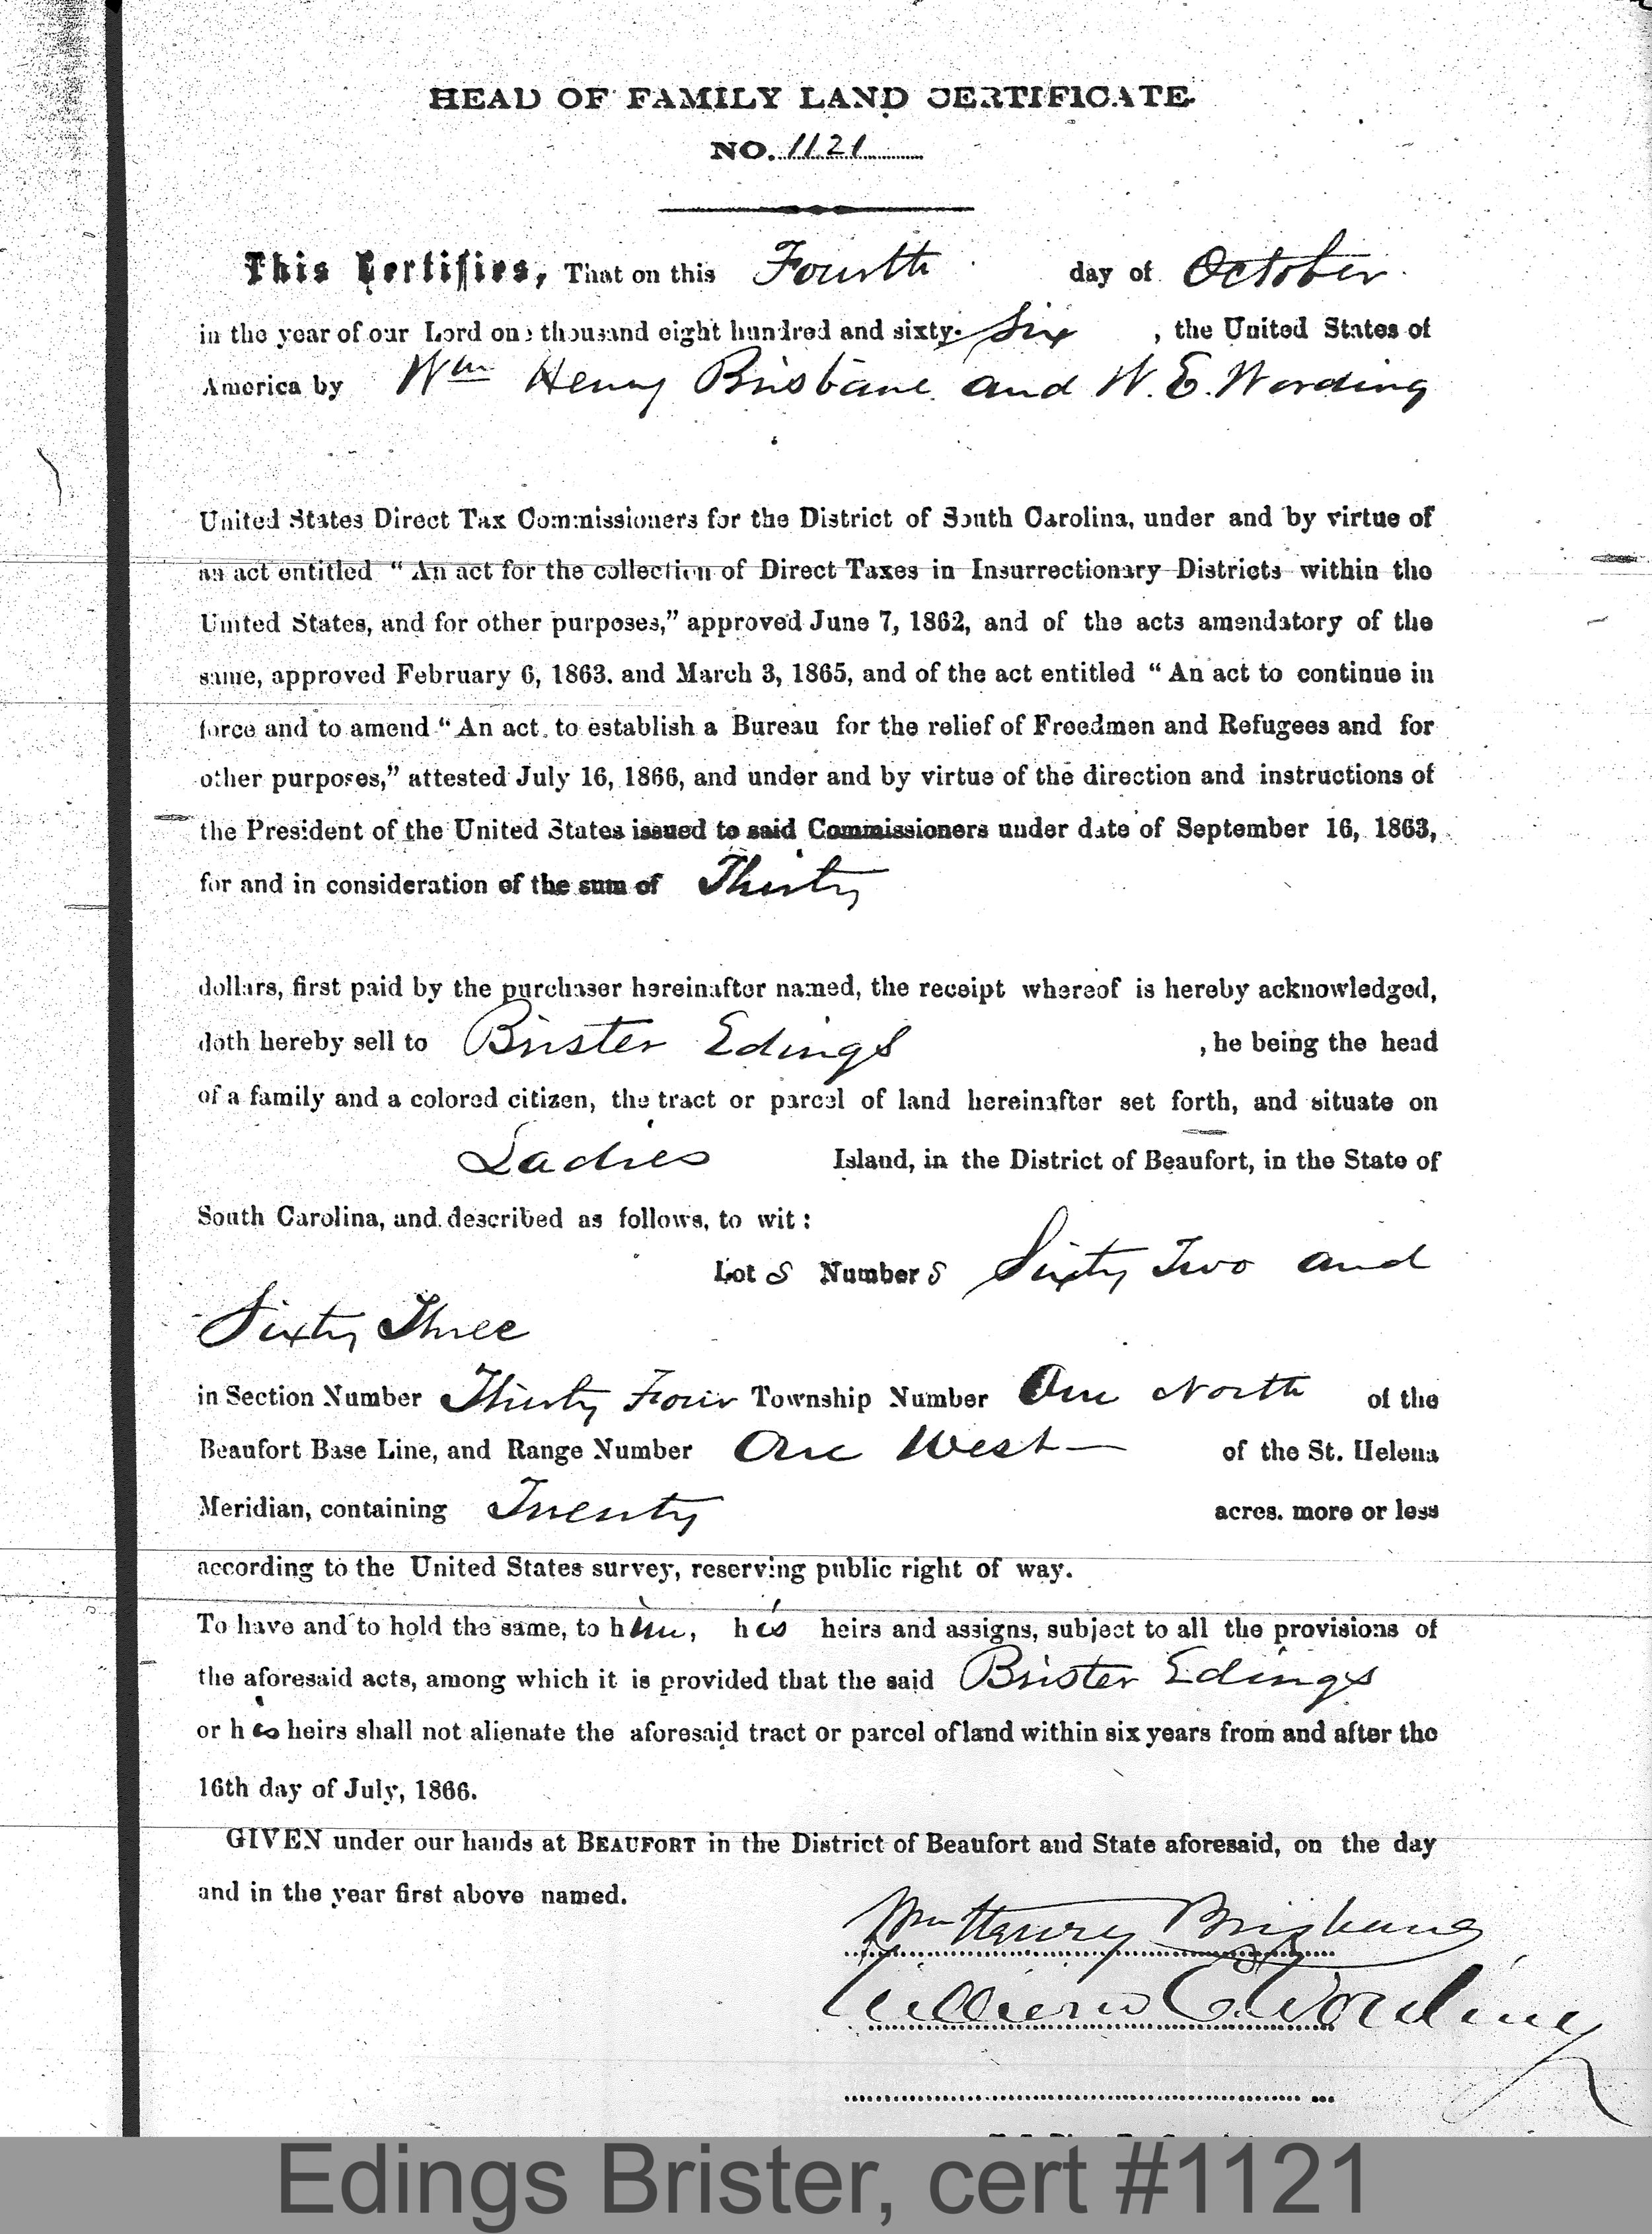 HEAD OF FAMILY LAND CERTIFICATE.
NO. 1121
This Certifies, That on this Fourth day of October
in the year of our Lord one thousand eight hundred and sixty-six, the United States of
America by Wm Henry Brisbane and W. E. Wording
United States Direct Tax Commissioners for the District of South Carolina, under and by virtue of
an act entitled "An act for the collection of Direct Taxes in Insurrectionary Districts within the
United States, and for other purposes," approved June 7, 1862, and of the acts amendatory of the
same, approved February 6, 1863. and March 3, 1865, and of the act entitled "An act to continue in
force and to amend "An act to establish a Bureau for the relief of Freedmen and Refugees and for
other purposes," attested July 16, 1866, and under and by virtue of the direction and instructions of
the President of the United States issued to said Commissioners under date of September 16, 1863,
for and in consideration of the sum of Thirty
dollars, first paid by the purchaser hereinafter named, the receipt whereof is hereby acknowledged,
doth hereby sell to Brister Edings, he being the head
of a family and a colored citizen, the tract or parcel of land hereinafter set forth, and situate on
Ladies Island, in the District of Beaufort, in the State of
South Carolina, and described as follows, to wit:
Lot S Number S Sixty Two and
Sixty Three
in Section Number Thirty Four Township Number One North of the
Beaufort Base Line, and Range Number One West of the St. Helena
Meridian, containing Twenty acres. more or less
according to the United States survey, reserving public right of way.
To have and to hold the same, to him, his heirs and assigns, subject to all the provisions of
the aforesaid acts, among which it is provided that the said Brister Edings
or his heirs shall not alienate the aforesaid tract or parcel of land within six years from and after the
16th day of July, 1866.
GIVEN under our hands at BEAUFORT in the District of Beaufort and State aforesaid, on the day
and in the year first above named.
Wm Henry Brisbane
William E. Wording
Edings Brister, cert #1121